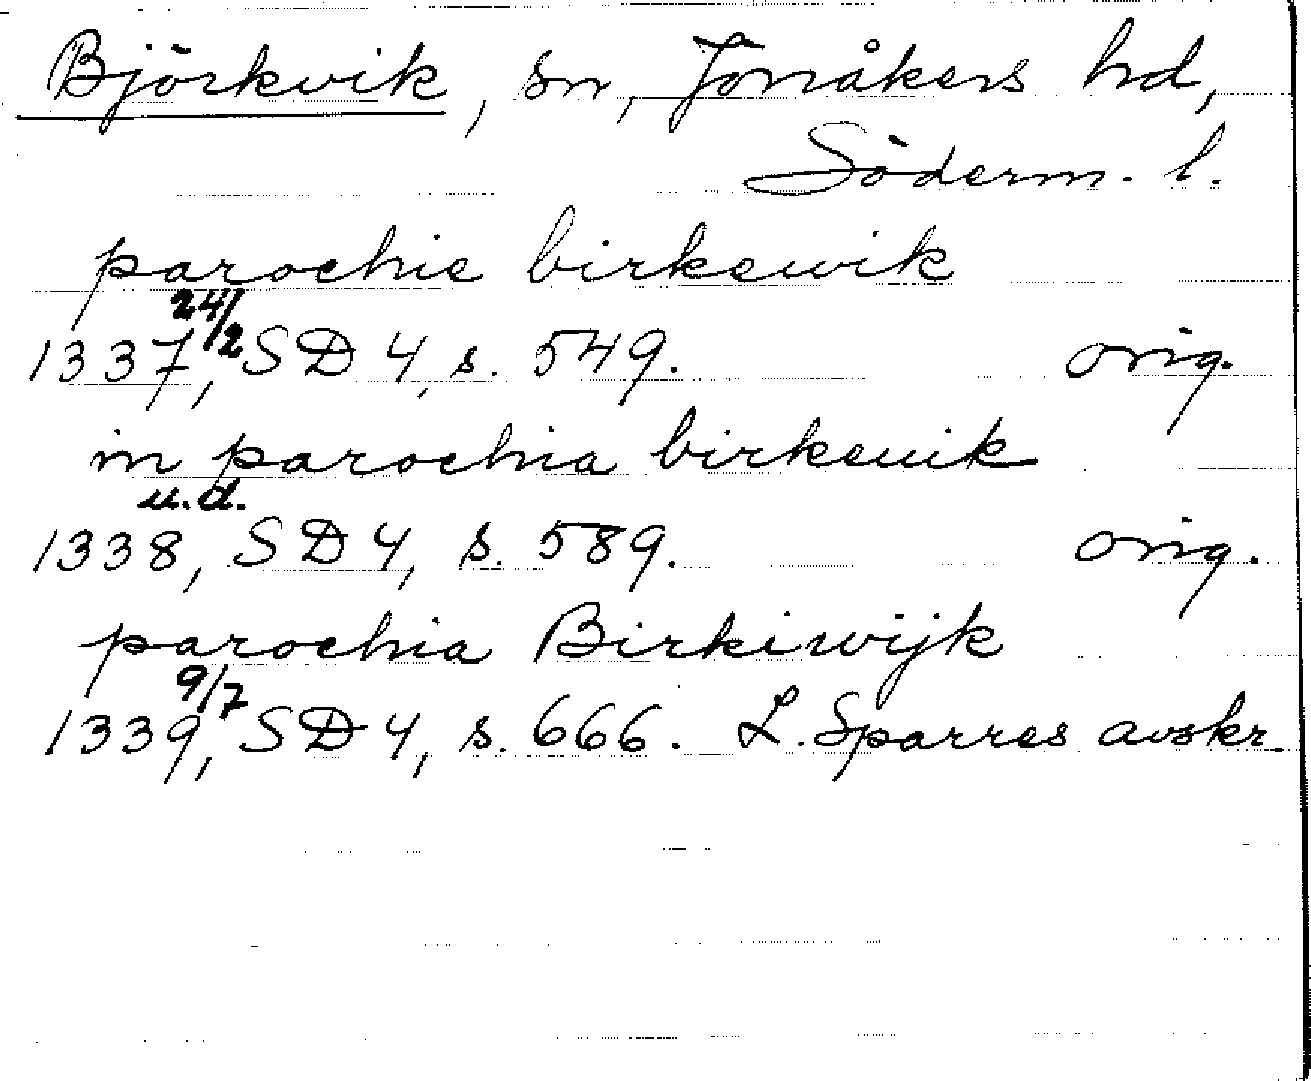 Björkvik, sn, Jönåkers hd,
Söderm. l.
parochie birkewik
1337 24/2, SD 4, s. 549. orig.
in parochia birkeuik
u.d.
1338, SD 4, s. 589. orig.
parochia Birkiwijk
1339 9/7, SD 4, s. 666. L. Sparres avskr.